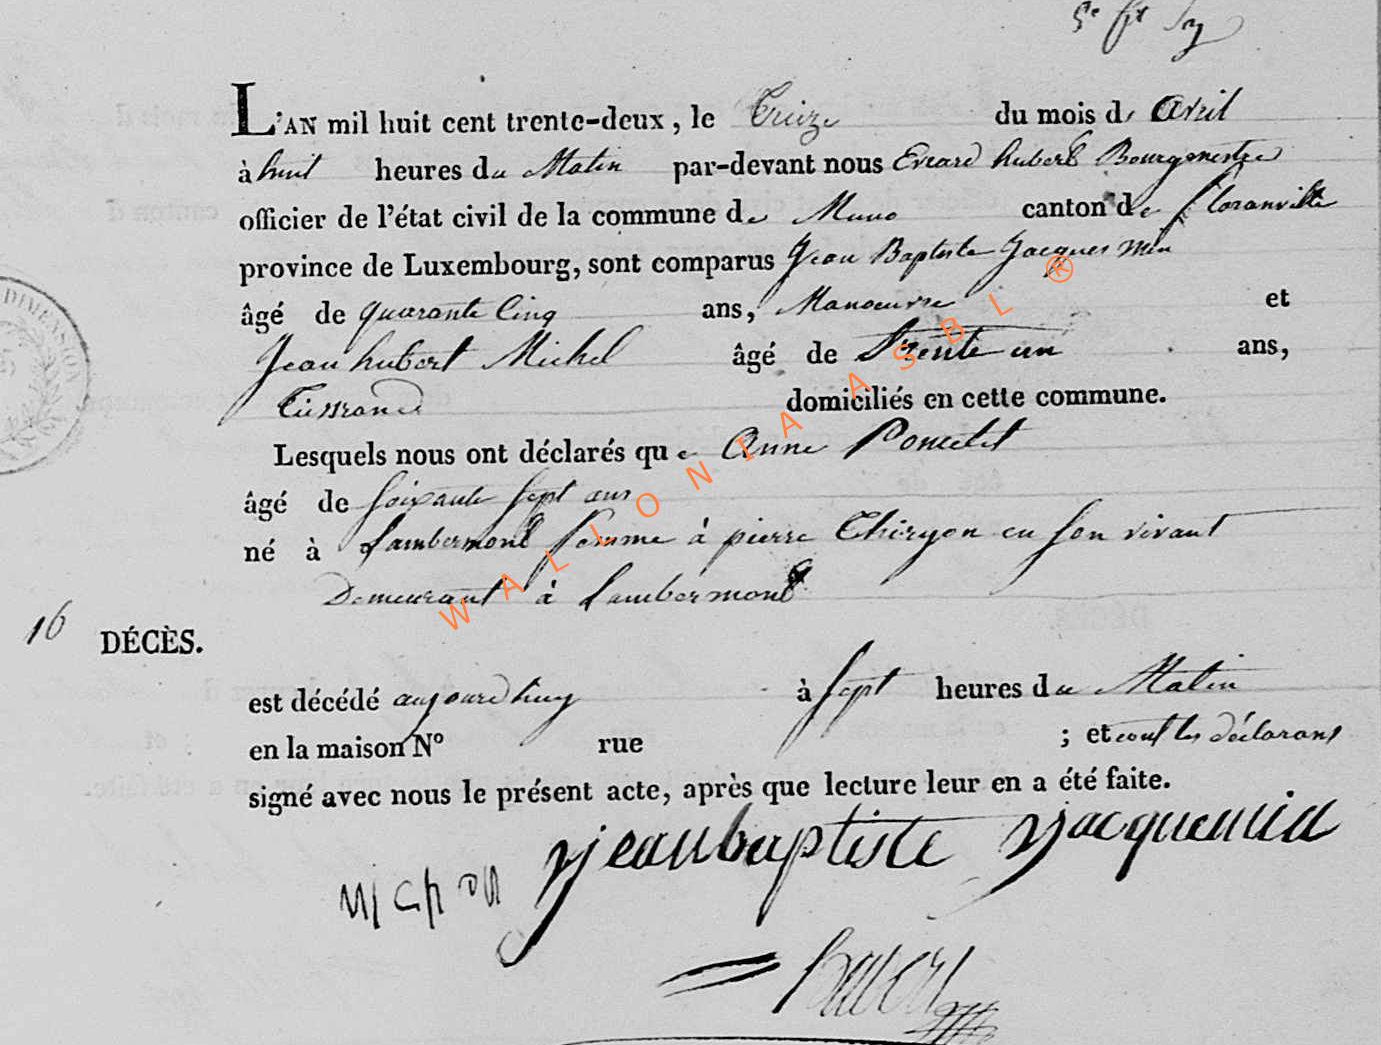 L'AN mil huit cent trente-deux, le Treize du mois de Avril
à huit heures du Matin par-devant nous Evrard hubert Bourgmestre
officier de l'état civil de la commune de Muno canton de floranville
province de Luxembourg, sont comparus Jean Baptiste Jacques min
âgé de quarante Cinq ans, Manoeuvre et
Jean hubert Michel âgé de Trente un ans,
Tisserand domiciliés en cette commune.
Lesquels nous ont déclarés que Anne Poncelet
âgé de soixante sept ans
né à Lambermont femme à pierre Thiryon en son vivant
Demeurant à Lambermont
16 DÉCÈS.
est décédé aujourdhuy à sept heures du Matin
en la maison N° rue ; et ont les déclarans
signé avec nous le présent acte, après que lecture leur en a été faite.
jeanbaptiste jacquemin
hubert
WALLONIA ASBL ®
DIMENSION